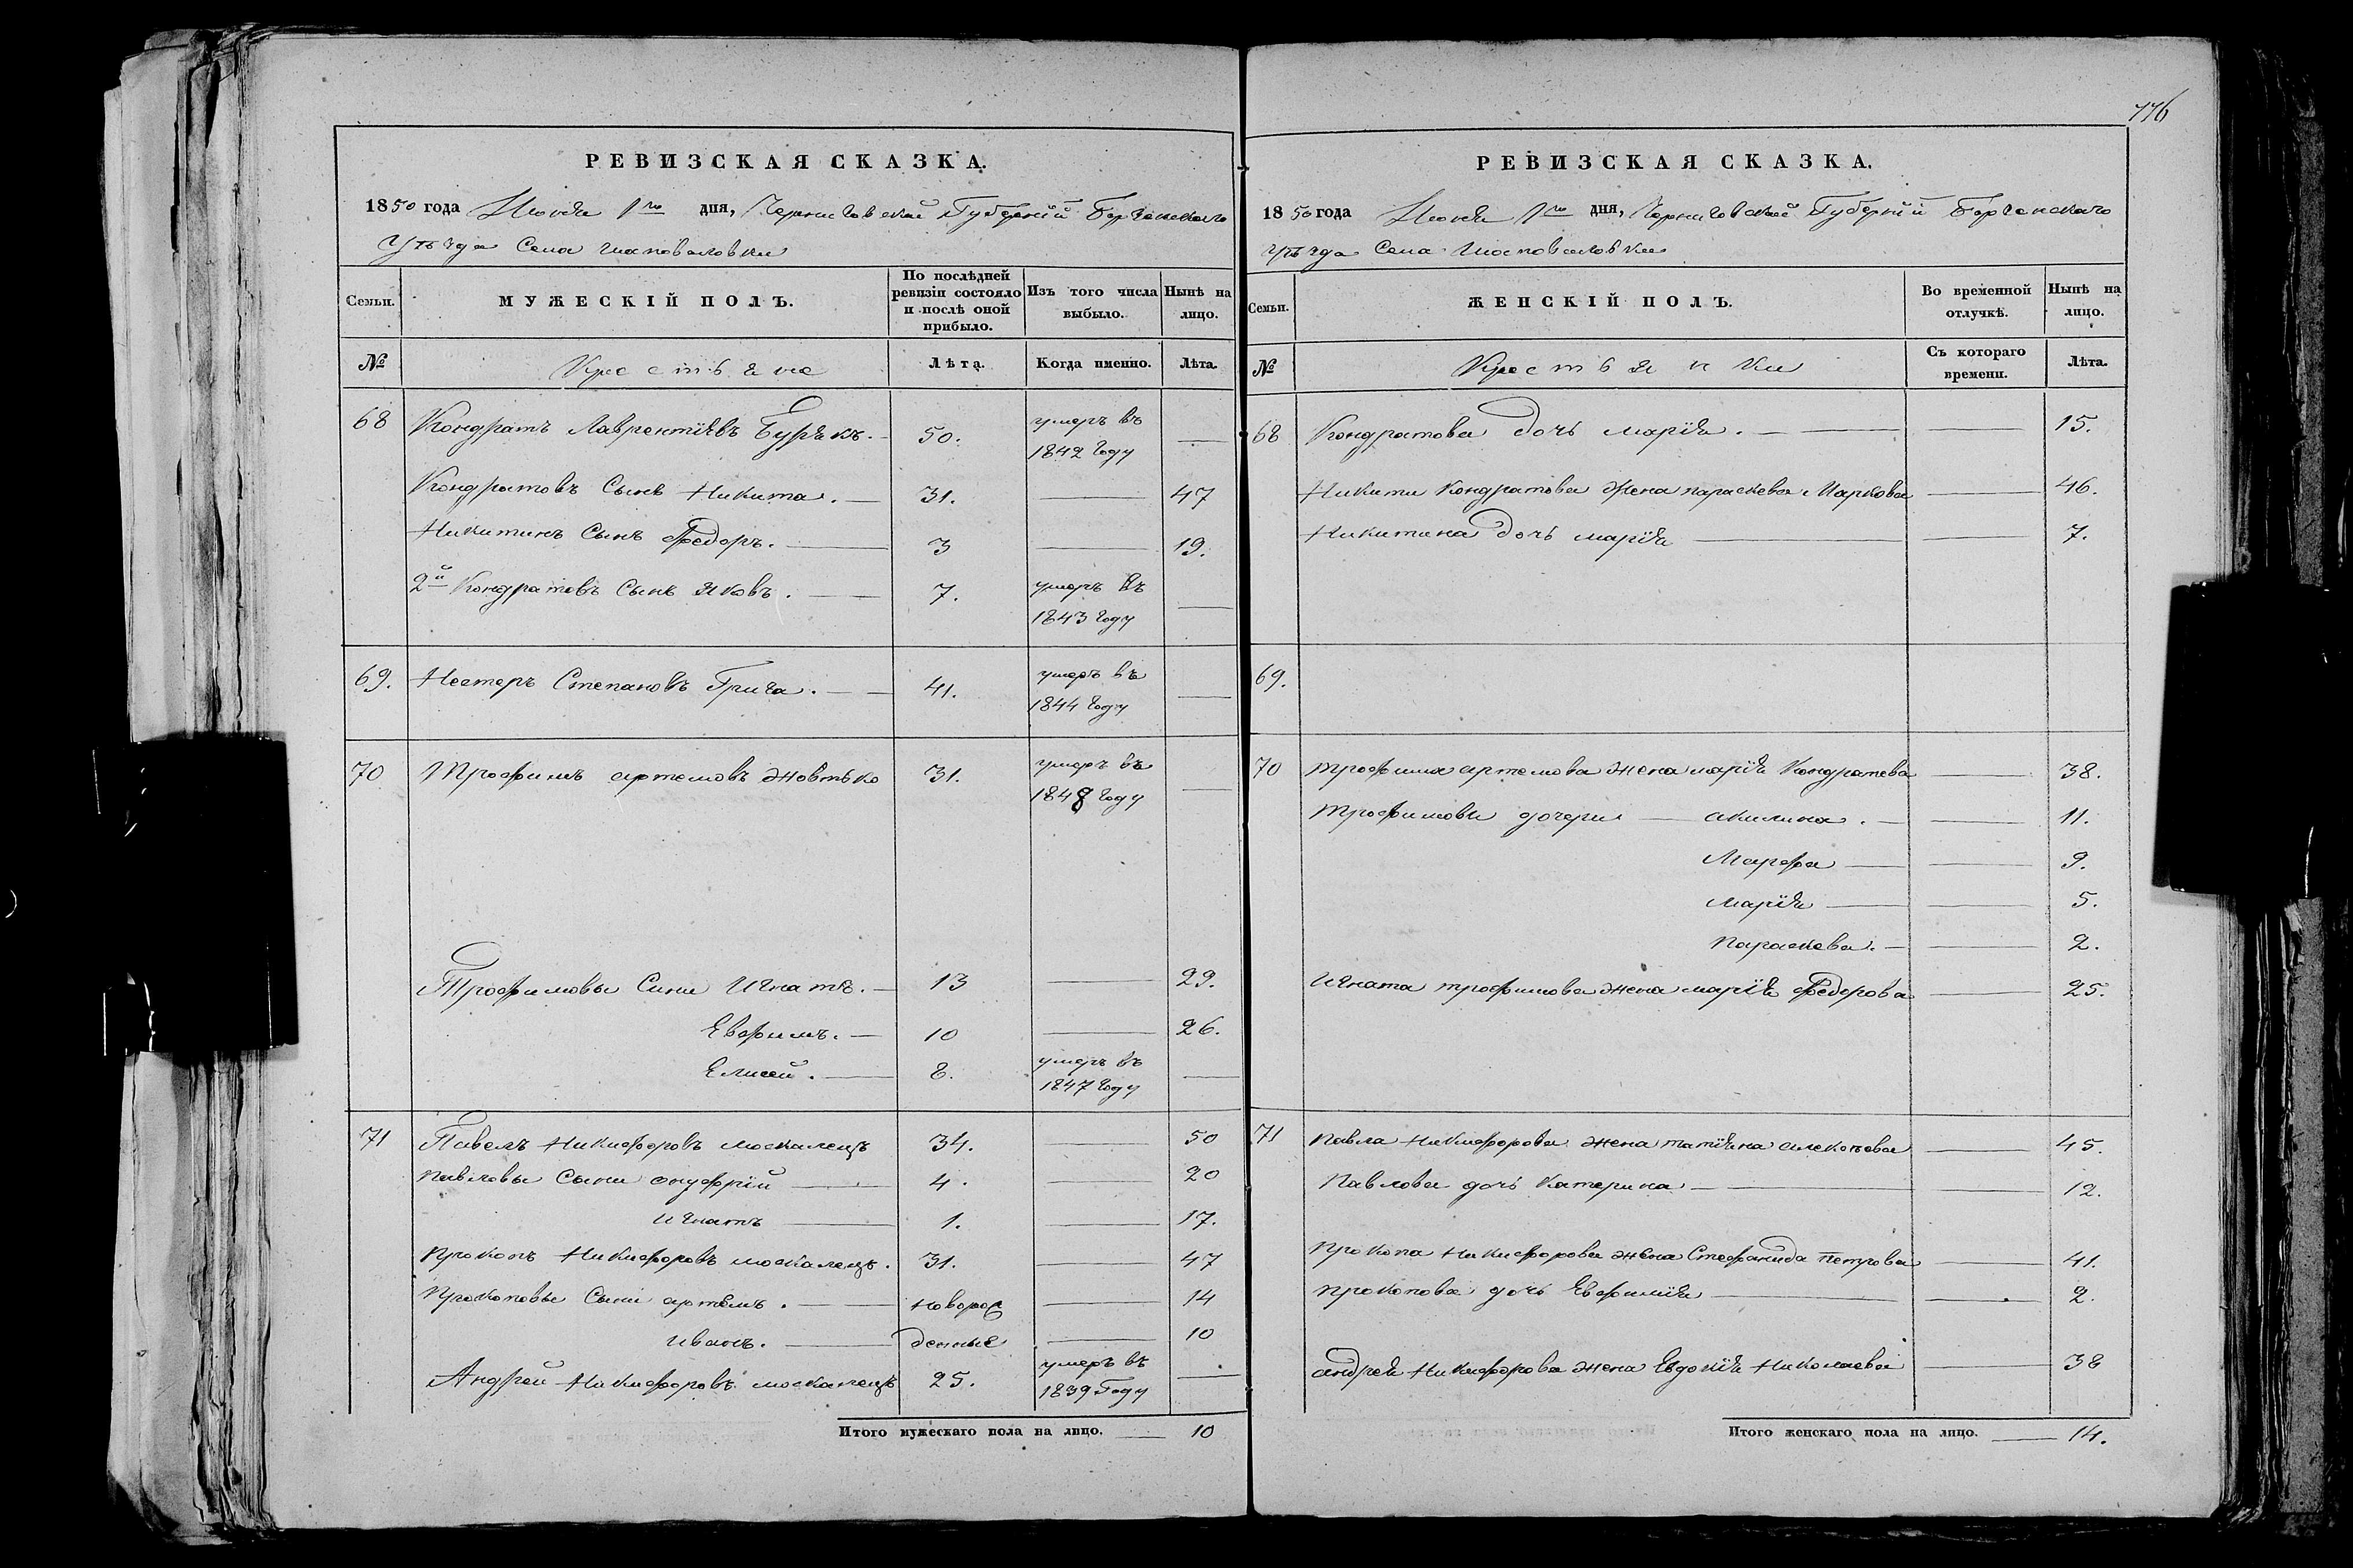 776
РЕВИЗСКАЯ СКАЗКА.
1850 года Июня 1го дня, Черниговской Губерніи Борзенскаго
Уѣзда Села Шаповаловки
Семьи. МУЖЕСКІЙ ПОЛЪ. По послѣдней ревизіи состояло и послѣ оной прибыло. Изъ того числа выбыло. Нынѣ на лицо.
№ Крестьяне Лѣта. Когда именно. Лѣта.
68 Кондратъ Лаврентіевъ Бурякъ. 50. умеръ въ 1842 году —
Кондратовъ Сынъ Никита. — 31. — 47
Никитинъ Сынъ Федоръ. — 3 — 19.
2й Кондратовъ Сынъ Яковъ. — 7. умеръ въ 1843 году —
69. Нестеръ Степановъ Грига. — 41. умеръ въ 1844 году —
70 Трофимъ артемовъ Жовтько 31. умеръ въ 1848 году —
Трофимовы Сини Игнатъ. — 13 — 29.
Евфимъ. — 10 — 26.
Елисей. — 8. умеръ въ 1847 году —
71 Павелъ Никифоровъ москалецъ 34. — 50
павловы Сыни онуфрій — 4. — 20
игнатъ — 1. — 17.
прокопъ Никифоровъ москалецъ. 31. — 47
прокоповы Сыни артемъ. — новорож — 14
иванъ. — денные — 10
Андрей Никифоровъ москалецъ 25. умеръ въ 1839 Году —
Итого мужескаго пола на лицо. — 10
РЕВИЗСКАЯ СКАЗКА.
1850 года Июня 1го дня, Черниговской Губерніи Борзенскаго
уѣзда Села Шаповаловки
Семьи. ЖЕНСКІЙ ПОЛЪ. Во временной отлучкѣ. Нынѣ на лицо.
№ Крестьянки Съ котораго времени. Лѣта.
68 Кондратова дочь марія. — — 15.
Никиты Кондратова Жена параскева Маркова — 46.
Никитина дочь марія — — 7.
69.
70 трофима артемова жена марія Кондратева — 38.
трофимовы дочери — акилина. — — 11.
Марфа — — 9.
марія — — 5.
параскева. — — 2.
Игната трофимова жена марія Федорова — 25.
71 павла Никифорова жена татіяна алексѣева — 45.
Павлова дочь Катерина — — 12.
прокопа Никифорова жена Стефанида петрова — 41.
прокопова дочь Евфимія — — 2.
андрея Никифорова жена Евдокія Николаева — 38
Итого женскаго пола на лицо. — 14.